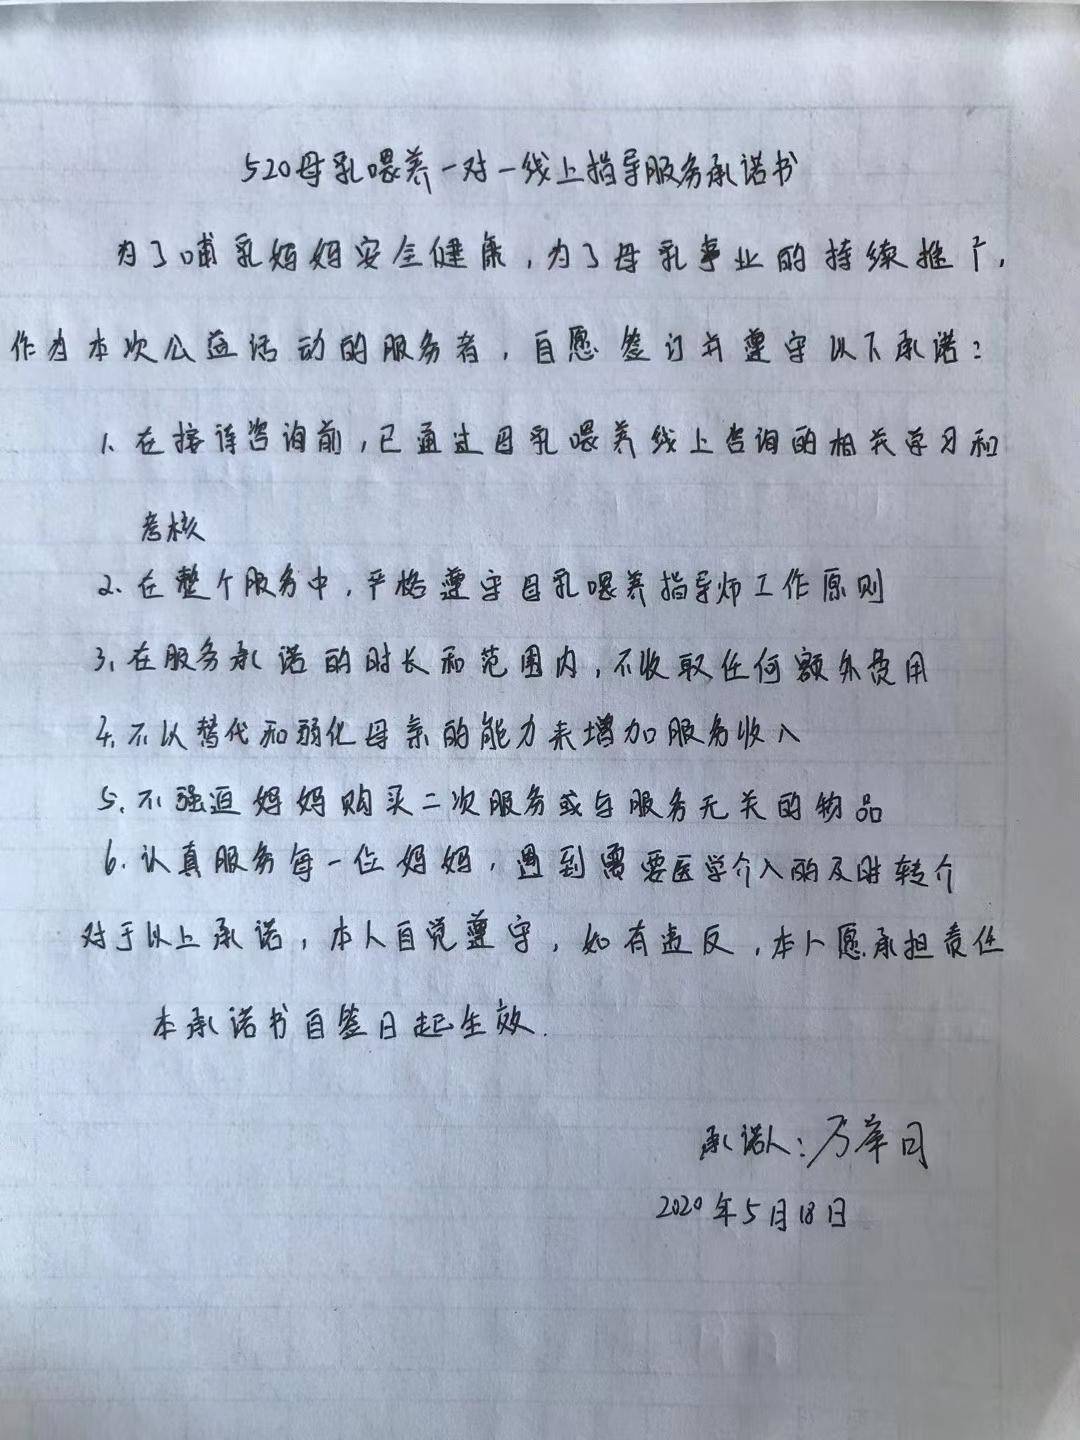 520母乳喂养一对一线上指导服务承诺书
为了哺乳妈妈安全健康，为了母乳事业的持续推广，
作为本次公益活动的服务者，自愿签订并遵守以下承诺：
1.在接诿咨询前，已通过母乳喂养线上咨询的相关学习和
考核
2.在整个服务中，严格遵守母乳喂养指导师工作原则
3.在服务承诺的时长和范围内，不收取任何额外费用
4.不以替代和弱化母亲的能力来增加服务收入
5.不强迫妈妈购买二次服务或与服务无关的物品
6.认真服务每一位妈妈，遇到需要医学介入的及时转介
对于以上承诺，本人自觉遵守，如有违反，本人愿承担责任
本承诺书自签日起生效.
承诺人：
2020年5月18日